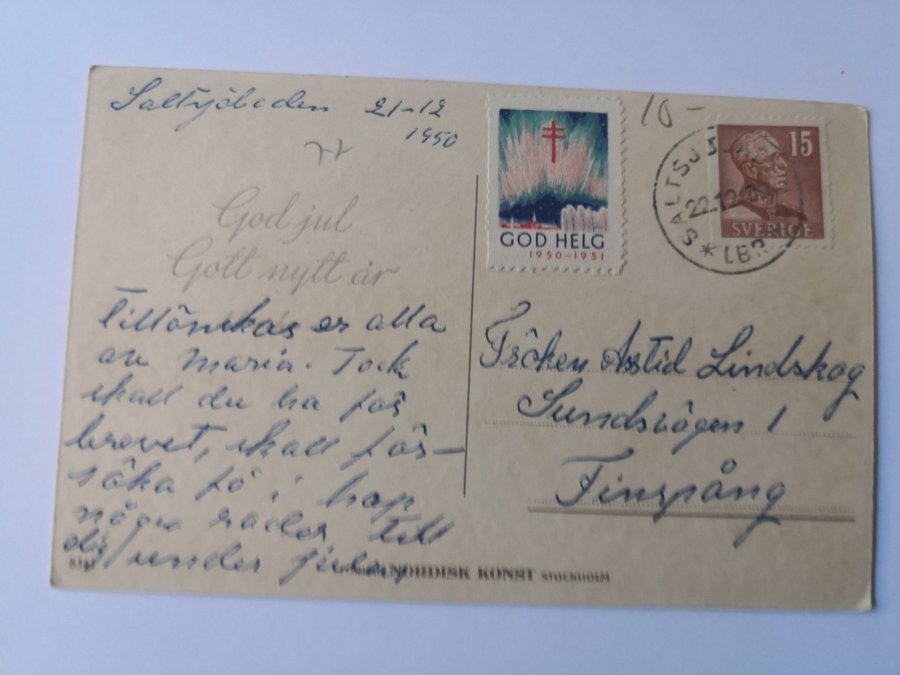 Saltsjöbaden 21-12
1950
God jul
Gott nytt år
Tillönskas er alla
av Maria. Tack
skall du ha för
brevet, skall för-
söka få i hop
några rader till
dig under julen
NORDISK KONST STOCKHOLM
10-
GOD HELG
1950-1951
SALTSJ
22.12
15
SVERIGE
Fröken Astrid Lindskog
Sundsvägen 1
Finspång